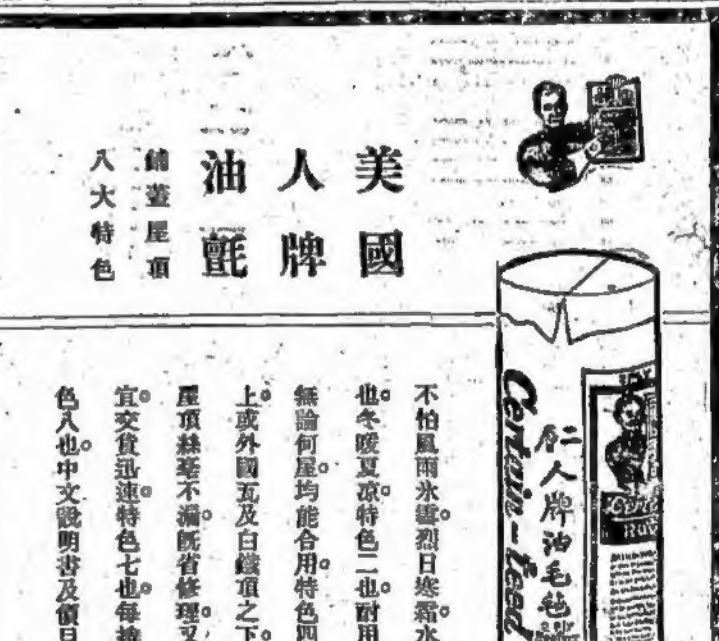 美國
人牌
油氈
鋪蓋屋頂
八大特色
Certain-teed
人牌油毛毡
不怕風雨氷雪烈日寒霜。水
也。冬暖夏凉特色二也。耐用
無論何屋。均能合用。特色四
上。或外國瓦及白鐵頂之下。
屋頂絲毫不漏。既省修理。又
宜。交貨迅速特色七也。每
色八也。中文說明書及價目